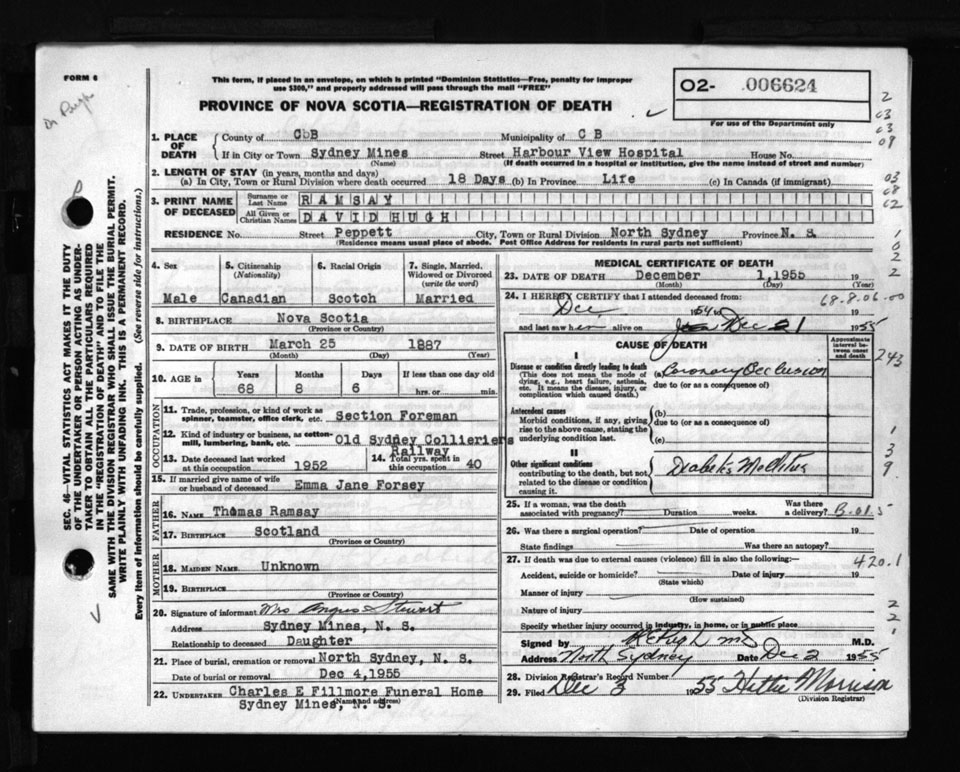 FORM 6
This form, if placed in an envelope, on which is printed "Dominion Statistics—Free, penalty for improper
use $300," and properly addressed will pass through the mail "FREE"
PROVINCE OF NOVA SCOTIA—REGISTRATION OF DEATH
O2- 006624
For use of the Department only
2
03
03
09
SEC. 46—VITAL STATISTICS ACT MAKES IT THE DUTY
OF THE UNDERTAKER OR PERSON ACTING AS UNDER-
TAKER TO OBTAIN ALL THE PARTICULARS REQUIRED
IN THE "REGISTRATION OF DEATH" AND TO FILE THE
SAME WITH THE DIVISION REGISTRAR WHO SHALL ISSUE THE BURIAL PERMIT.
WRITE PLAINLY WITH UNFADING INK. THIS IS A PERMANENT RECORD.
Every item of information should be carefully supplied. (See reverse side for instructions.)
1. PLACE OF DEATH
County of CbB Municipality of C B
If in City or Town Sydney Mines Street Harbour View Hospital House No.
(Name) (If death occurred in a hospital or institution, give the name instead of street and number)
2. LENGTH OF STAY (in years, months and days)
(a) In City, Town or Rural Division where death occurred 18 Days (b) In Province Life (c) In Canada (if immigrant)
03
68
62
3. PRINT NAME OF DECEASED
Surname or Last Name RAMSAY
All Given or Christian Names DAVID HUGH
RESIDENCE No. Street Peppett City, Town or Rural Division North Sydney Province N. S.
(Residence means usual place of abode. Post Office Address for residents in rural parts not sufficient)
1
0
2
2
4. Sex 5. Citizenship (Nationality) 6. Racial Origin 7. Single, Married, Widowed or Divorced (write the word)
Male Canadian Scotch Married
8. BIRTHPLACE Nova Scotia
(Province or Country)
9. DATE OF BIRTH March 25 1887
(Month) (Day) (Year)
10. AGE in Years Months Days If less than one day old
68 8 6 hrs. or min.
OCCUPATION
11. Trade, profession, or kind of work as spinner, teamster, office clerk, etc. Section Foreman
12. Kind of industry or business, as cotton-mill, lumbering, bank, etc. Old Sydney Collieriers Railway
13. Date deceased last worked at this occupation 1952 14. Total yrs. spent in this occupation 40
15. If married give name of wife or husband of deceased Emma Jane Forsey
FATHER
16. NAME Thomas Ramsay
17. BIRTHPLACE Scotland
(Province or Country)
MOTHER
18. MAIDEN NAME Unknown
19. BIRTHPLACE
(Province or Country)
20. Signature of informant Mrs Angus Stewart
Address Sydney Mines, N. S.
Relationship to deceased Daughter
21. Place of burial, cremation or removal North Sydney, N. S.
Date of burial or removal Dec 4,1955
22. UNDERTAKER Charles E Fillmore Funeral Home
(Name and address)
Sydney Mines, N. S.
MEDICAL CERTIFICATE OF DEATH
23. DATE OF DEATH December 1,1955 19
(Month) (Day)
24. I HEREBY CERTIFY that I attended deceased from: 68.8.06.00
Dec 1954 19
and last saw h alive on Dec 1 1955
CAUSE OF DEATH
Approximate interval between onset and death
243
I
Disease or condition directly leading to death
(This does not mean the mode of dying, e.g., heart failure, asthenia, etc. It means the disease, injury, or complication which caused death.)
(a) Coronary Occlusion
due to (or as a consequence of)
Antecedent causes
Morbid conditions, if any, giving rise to the above cause, stating the underlying condition last.
(b)
due to (or as a consequence of)
(c)
II
Other significant conditions
contributing to the death, but not related to the disease or condition causing it.
Diabetes Mellitus
1
3
9
25. If a woman, was the death associated with pregnancy? Duration weeks. Was there a delivery?
26. Was there a surgical operation? Date of operation 19
State findings Was there an autopsy?
27. If death was due to external causes (violence) fill in also the following:— 420.1
Accident, suicide or homicide? Date of injury 19
(State which)
Manner of injury
(How sustained)
Nature of injury
2
2
1
Specify whether injury occurred in industry, in home, or in public place
Signed by M.D.
Address North Sydney Date Dec 2 1955
28. Division Registrar's Record Number
29. Filed Dec 3 1955 Hattie Morrison
(Division Registrar)